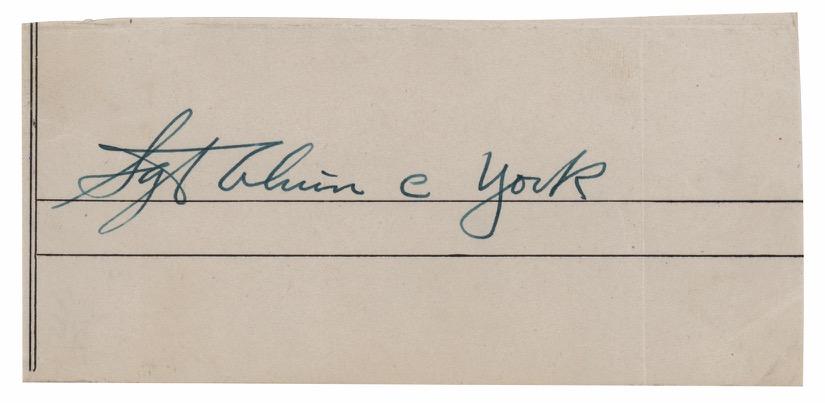 Sgt Alvin C York